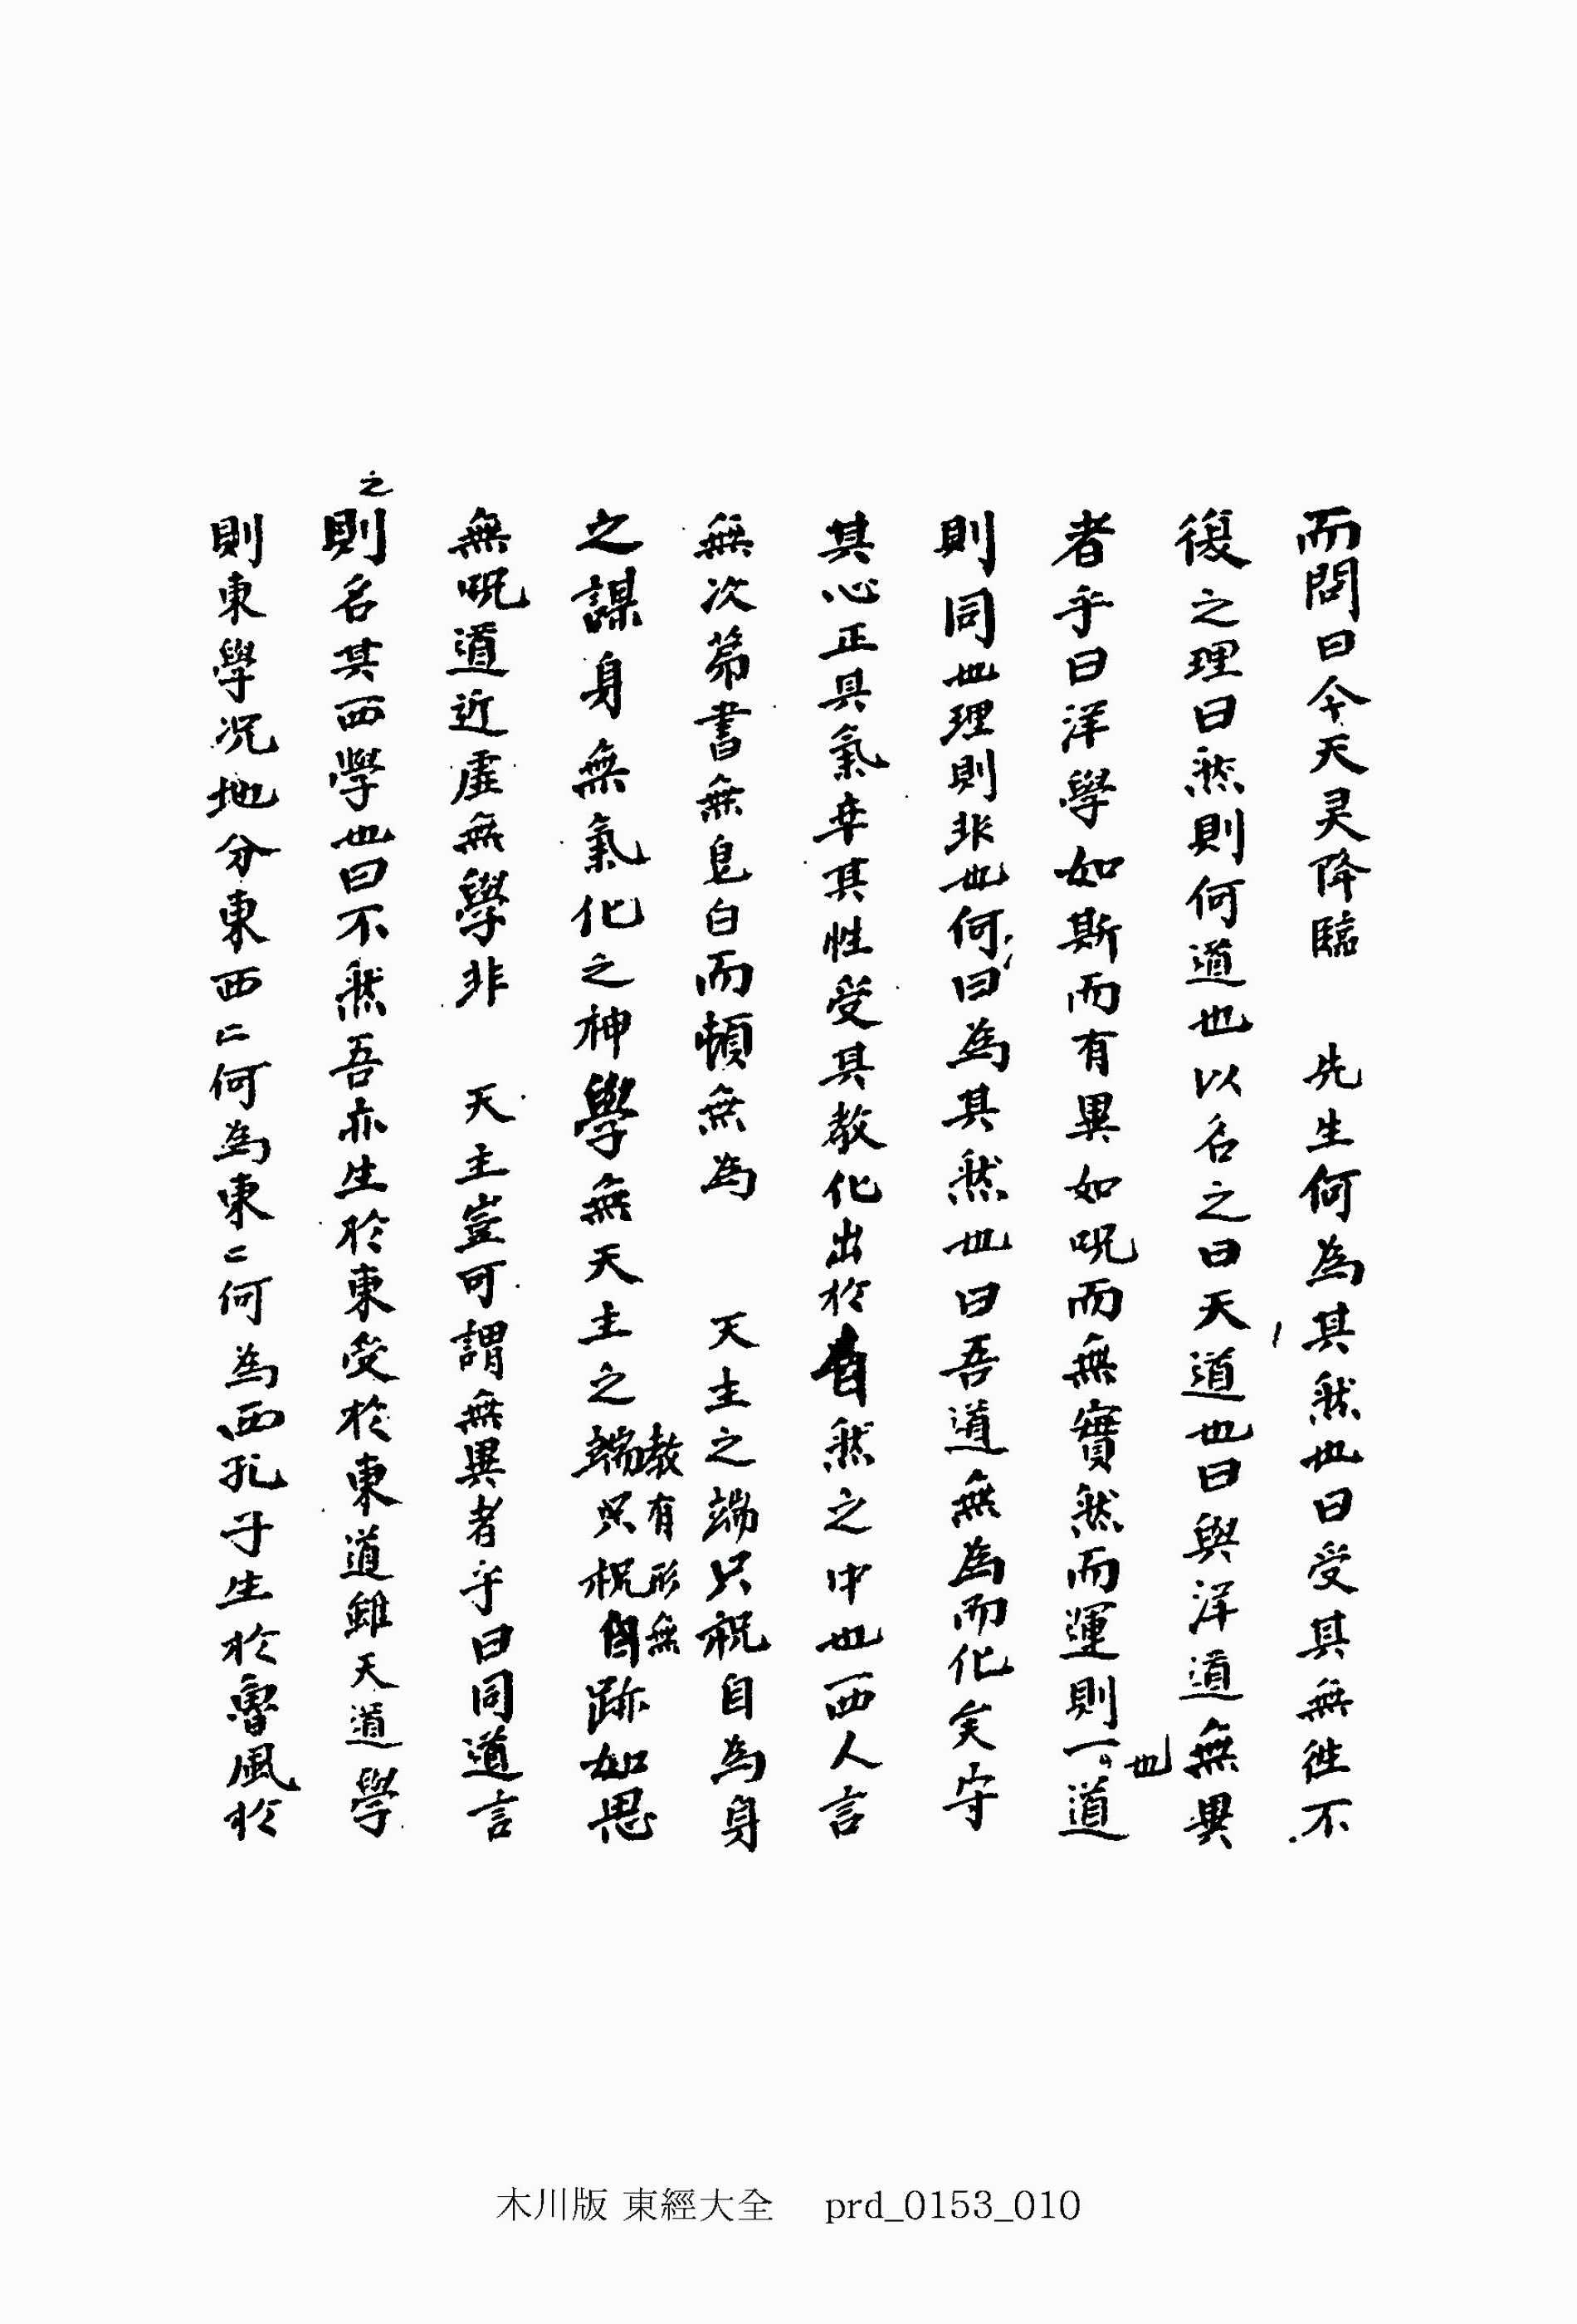 而問曰今天灵降臨　先生何為其然也曰受其無徃不
復之理曰然則何道也以名之曰天道也曰與洋道無異
者乎曰洋學如斯而有異如呪而無實然而運則一也道
則同也理則非也何曰為其然也曰吾道無為而化矣守
其心正其氣率其性受其教化出於自然之中也西人言
無次苐書無皂白而頓無為　天主之端只祝自為身
之謀身無氣化之神學無天主之端教有形無跡如思
無呪道近虛無學非　天主豈可謂無異者乎曰同道言
之則名其西學也曰不然吾亦生於東受於東道雖天道學
則東學況地分東西二何為東二何為西孔子生於魯風於
木川版 東經大全 prd_0153_010